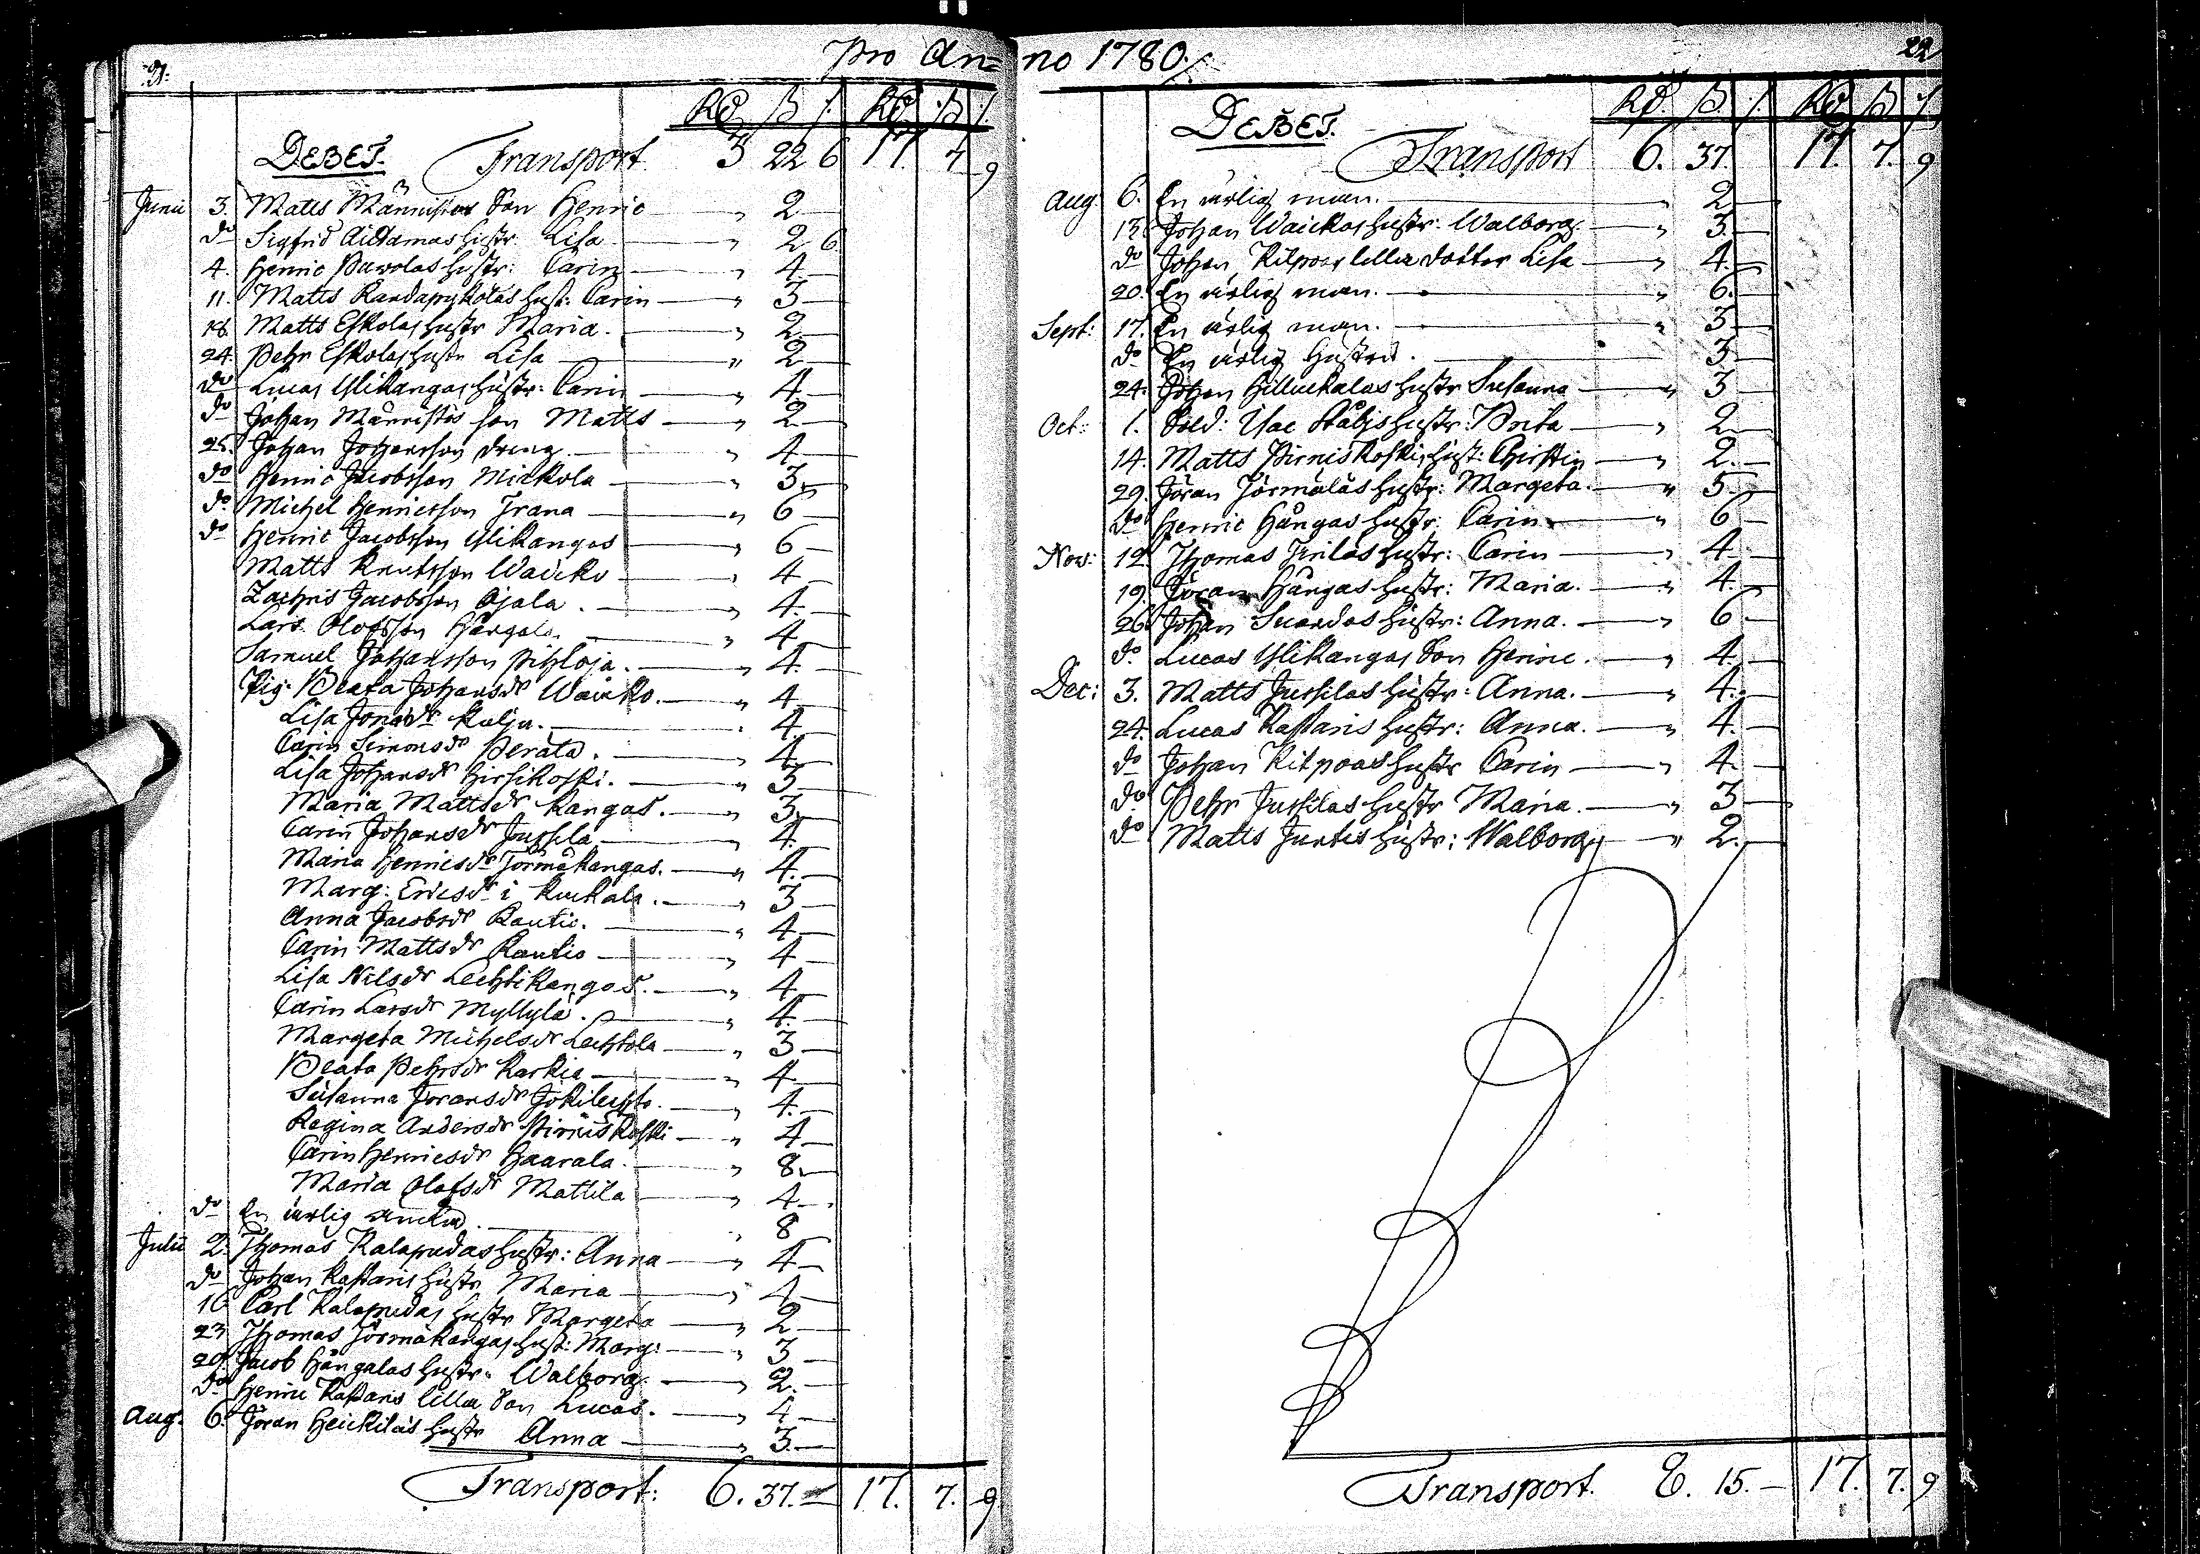 21.
Pro An=
Rd ß /. Rd ß /.
DEBET. Transport 3 22 6 17. 7. 9
Junii 3. Matts Männistös Son Henric — „ 2 —
do Sigfrid hustr. Lisa — „ 2 6
4. Henric Pavolas hustr: Carin — „ 4 —
11. Matts hust: Carin — „ 3 —
18. Matts Eskolas hustr Maria. — „ 2 —
24. Pehr Eskolas hustr Lisa — „ 2 —
do Lucas Ylikangas hustr: Carin — „ 4 —
do Johan Männistös son Matts — „ 2 —
25. Johan Johansson dreng. — „ 4 —
do Henric Jacobsson Mickola — „ 3 —
do Michel Henricsson Trana — „ 6 —
do Henric Jacobsson Ylikangas — „ 6 —
Matts Knutsson Waicko — „ 4 —
Zachris Jacobsson Ojala. — „ 4. —
Lars Olofsson Hångala. — „ 4 —
Samuel Johansson Pihloja. — „ 4. —
Pig. Beata Johansdr Waicko. — „ 4 —
Lisa Jonsdr Kulju. — „ 4. —
Carin Simonsdr Perätä. — „ 4 —
Lisa Johansdr Hirsikoski. — „ 3 —
Maria Mattsdr Kangas. — „ 3 —
Carin Johansdr Jussila — „ 4. —
Maria Henricsdr Jörmäkangas. — „ 4. —
Marg: Ericsdr i Kuckala. — „ 3 —
Anna Jacobsdr Rautio. — „ 4 —
Carin Mattsdr Rautio — „ 4 —
Lisa Nilsdr Lechtikangas. — „ 4 —
Carin Larsdr Myllylä. — „ 4. —
Margeta Michelsdr Lechtola — „ 3 —
Beata Pehrsdr Karkia — „ 4. —
Susanna Joransdr Jokilechto. — „ 4. —
Regina Andersdr Pirniskoski — „ 4 —
Carin Henricsdr Haarala. — „ 8. —
Maria Olofsdr Mattila — „ 4 —
do En ärlig. — „ 8
Julii 2. Thomas Kalapudas hustr: Anna — „ 4 —
do Johan Kastaris hustr Maria — „ 4 —
16 Carl Kalapudas hustr Margeta — „ 2 —
23 Thomas Jörmäkangas hust: Marg: — „ 3 —
29. Jacob Hångalas hustr. Walborg. — „ 2. —
do Henric Kastaris lilla Son Lucas. — „ 4 —
Aug. 6. Jöran Heickiläs hustr Anna — „ 3. —
Transport: 6. 37. — 17. 7. 9
no 1780.
22
Rd. ß. /. Rd ß /.
DEBET.
Transport 6. 37. 17. 7. 9
Aug 6. En ärlig man. — „ 2 —
13. Johan Waickos hustr: Walborg. — „ 3. —
do Johan Kitpoas lilla dotter Lisa — „ 4 —
20. En ärlig man. — „ 6. —
Sept: 17. En ärlig man. — „ 3 —
do En ärlig Hustru. — 3 —
24. Johan Hilluckalas hustr Susanna — „ 3 —
Oct: 1. Sold: Isac Ståhls hustr: Brita — „ 2 —
14. Matts Pirniskoskis hust: Chirstin — „ 2. —
29. Jöran Jörmäläs hustr: Margeta. — „ 5 —
do Henric Hångas hustr. Carin — „ 6 —
Nov: 12. Thomas hustr: Carin — „ 4 —
19. Jöran Hångas hustr: Maria. — „ 4 —
26. Johan hustr: Anna. — „ 6 —
do Lucas Ylikangas Son Henric. — „ 4 —
Dec: 3. Matts Jussilas hustr: Anna. — „ 4. —
24. Lucas Kastaris hustr: Anna. — „ 4. —
do Johan Kitpoas hustr Carin — „ 4. —
do Pehr Jussilas hustr Maria. — „ 3 —
do Matts Juntis hustr: Walborg — „ 2. —
Transport. 8. 15. — 17. 7. 9